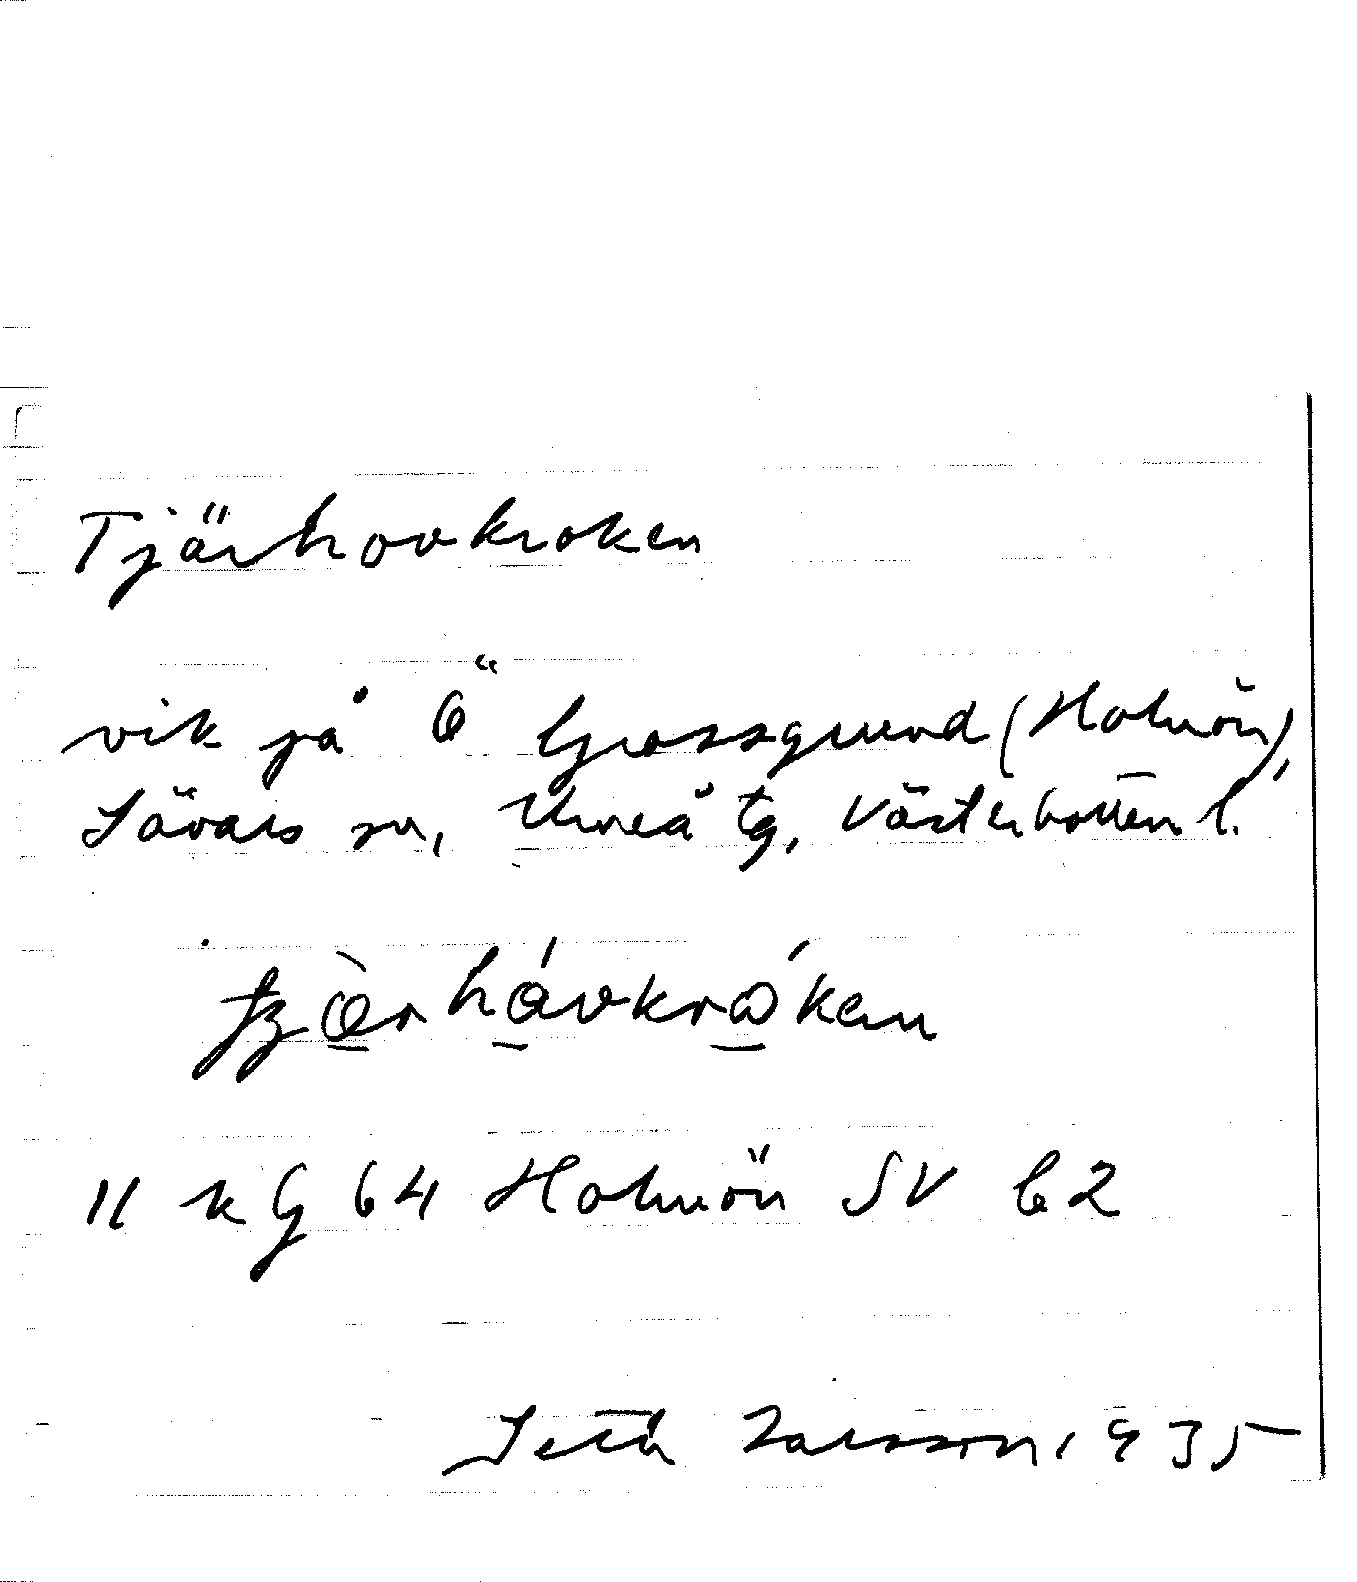 Tjärhovkroken
vik på ö Grossgrund (Holmön),
Sävars sn, Umeå tg, Västerbotten l.
11 k G 64 Holmön SV b2
Seth Larsson 1935